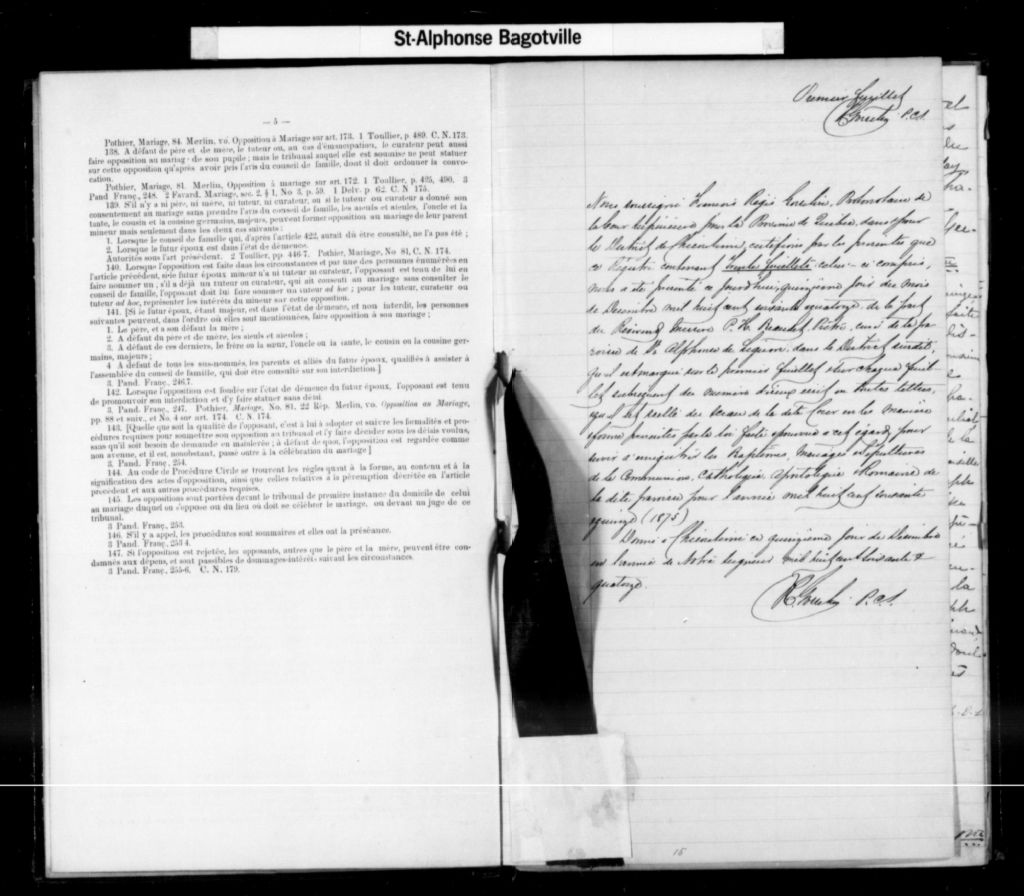 St-Alphonse Bagotville
— 5 —
Pothier, Mariage, 84. Merlin, vo. Opposition à Mariage sur art. 173. 1 Toullier, p. 489. C. N. 173.
138. A défaut de père et de mère, le tuteur ou, au cas d'émancipation, le curateur peut aussi
faire opposition au mariage de son pupile; mais le tribunal auquel elle est soumise ne peut statuer
sur cette opposition qu'après avoir pris l'avis du conseil de famille, dont il doit ordonner la convo-
cation.
Pothier, Mariage, 81. Merlin, Opposition à mariage sur art. 172. 1 Toullier, p. 425, 490. 3
Pand Franç., 248. 2 Favard, Mariage, sec. 2, § 1, No 3, p. 59. 1 Delv. p. 62. C. N 175.
139. S'il n'y a ni père, ni mère, ni tuteur, ni curateur, ou si le tuteur ou curateur a donné son
consentement au mariage sans prendre l'avis du conseil de famille, les aïeuls et aïeules, l'oncle et la
tante, le cousin et la cousine germains, majeurs, peuvent former opposition au mariage de leur parent
mineur mais seulement dans les deux cas suivants:
1. Lorsque le conseil de famille qui, d'après l'article 422, aurait dû être consulté, ne l'a pas été;
2. Lorsque le futur époux est dans l'état de démence.
Autorités sous l'art présédent. 2 Toullier, pp 446-7. Pothier, Mariage, No 81, C. N. 174.
140. Lorsque l'opposition est faite dans les circonstances et par une des personnes énumérées en
l'article précédent, si le futur époux mineur n'a ni tuteur ni curateur, l'opposant est tenu de lui en
faire nommer un; s'il a déjà un tuteur ou curateur, qui ait consenti au mariage sans consulter le
conseil de famille, l'opposant doit lui faire nommer un tuteur ad hoc; pour les tuteur, curateur ou
tuteur ad hoc, représenter les intérêts du mineur sur cette opposition.
141. [Si le futur époux, étant majeur, est dans l'état de démence, et non interdit, les personnes
suivantes peuvent, dans l'ordre où elles sont mentionnées, faire opposition à son mariage;
1. Le père, et à son défaut la mère;
2. A défaut du père et de mère, les aïeuls et aïeules;
3. A défaut de ces derniers, le frère ou la sœur, l'oncle ou la tante, le cousin ou la cousine ger-
mains, majeurs;
4 A défaut de tous les sus-nommés, les parents et alliés du futur époux, qualifiés à assister à
l'assemblée du conseil de famille, qui doit être consulté sur son interdiction.]
3. Pand. Franç., 246.7.
142. Lorsque l'opposition est fondée sur l'état de démence du futur époux, l'opposant est tenu
de promouvoir son interdiction et d'y faire statuer sans délai
3. Pand. Franç., 247. Pothier, Mariage, No. 81, 22 Rép. Merlin, vo. Opposition au Mariage,
pp. 88 et suiv., et No. 4 sur art. 174. C. N. 174.
143. [Quelle que soit la qualité de l'opposant, c'est à lui à adopter et suivre les formalités et pro-
cédures requises pour soumettre son opposition au tribunal et l'y faire décider sous les délais voulus,
sans qu'il soit besoin de demande en mainlevée; à défaut de quoi, l'opposition est regardée comme
non avenue, et il est, nonobstant, passé outre à la célébration du mariage]
3. Pand. Franç., 254.
144. Au code de Procédure Civile se trouvent les règles quant à la forme, au contenu et à la
signification des actes d'opposition, ainsi que celles relatives à la péremption décrétée en l'article
précédent et aux autres procédures requises.
145. Les oppositions sont portées devant le tribunal de première instance du domicile de celui
au mariage duquel on s'oppose ou du lieu où doit se célébrer le mariage, ou devant un juge de ce
tribunal.
3 Pand. Franç., 253.
146. S'il y a appel, les procédures sont sommaires et elles ont la préséance.
3. Pand. Franç., 253 4.
147. Si l'opposition est rejetée, les opposants, autres que le père et la mère, peuvent être con-
damnés aux dépens, et sont passibles de dommages-intérêts suivant les circonstances.
3 Pand. Franç., 255-6. C. N. 179.
Premier feuillet
P.C.S.
Nous soussigné François Régis Gosselin, Protonotaire de
la Cour Supérieure pour la Province de Québec, dans & pour
le District de Chicoutimi, certifions par les présentes que
ce Registre contenant trente feuillets celui-ci compris,
nous a été présenté ce jourd'hui, quinzième jour du mois
de Décembre mil huit cent soixante & quatorze de la part
du Révérend Messire P. H. Beaudet Prêtre, curé de la pa-
roisse de St Alphonse de Liguori, dans le District susdit;
qu'il est marqué sur le premier feuillet & sur chaque feuil-
let subséquent du numéro d'icelui écrit en toutes lettres,
qu'il est scellé du sceau de la dite Cour en la manière
& forme prescrites par la loi faite & pourvue à cet égard, pour
servir à enregistrer les Baptêmes Mariages & Sépultures
de la Communion, Catholique, Apostolique & Romaine de
la dite paroisse pour l'année mil huit cent soixante
& quinze (1875)
Donné à Chicoutimi ce quinzième jour de Décembre
en l'année de Notre Seigneur mil huit cent soixante &
quatorze.
P.C.S.
15